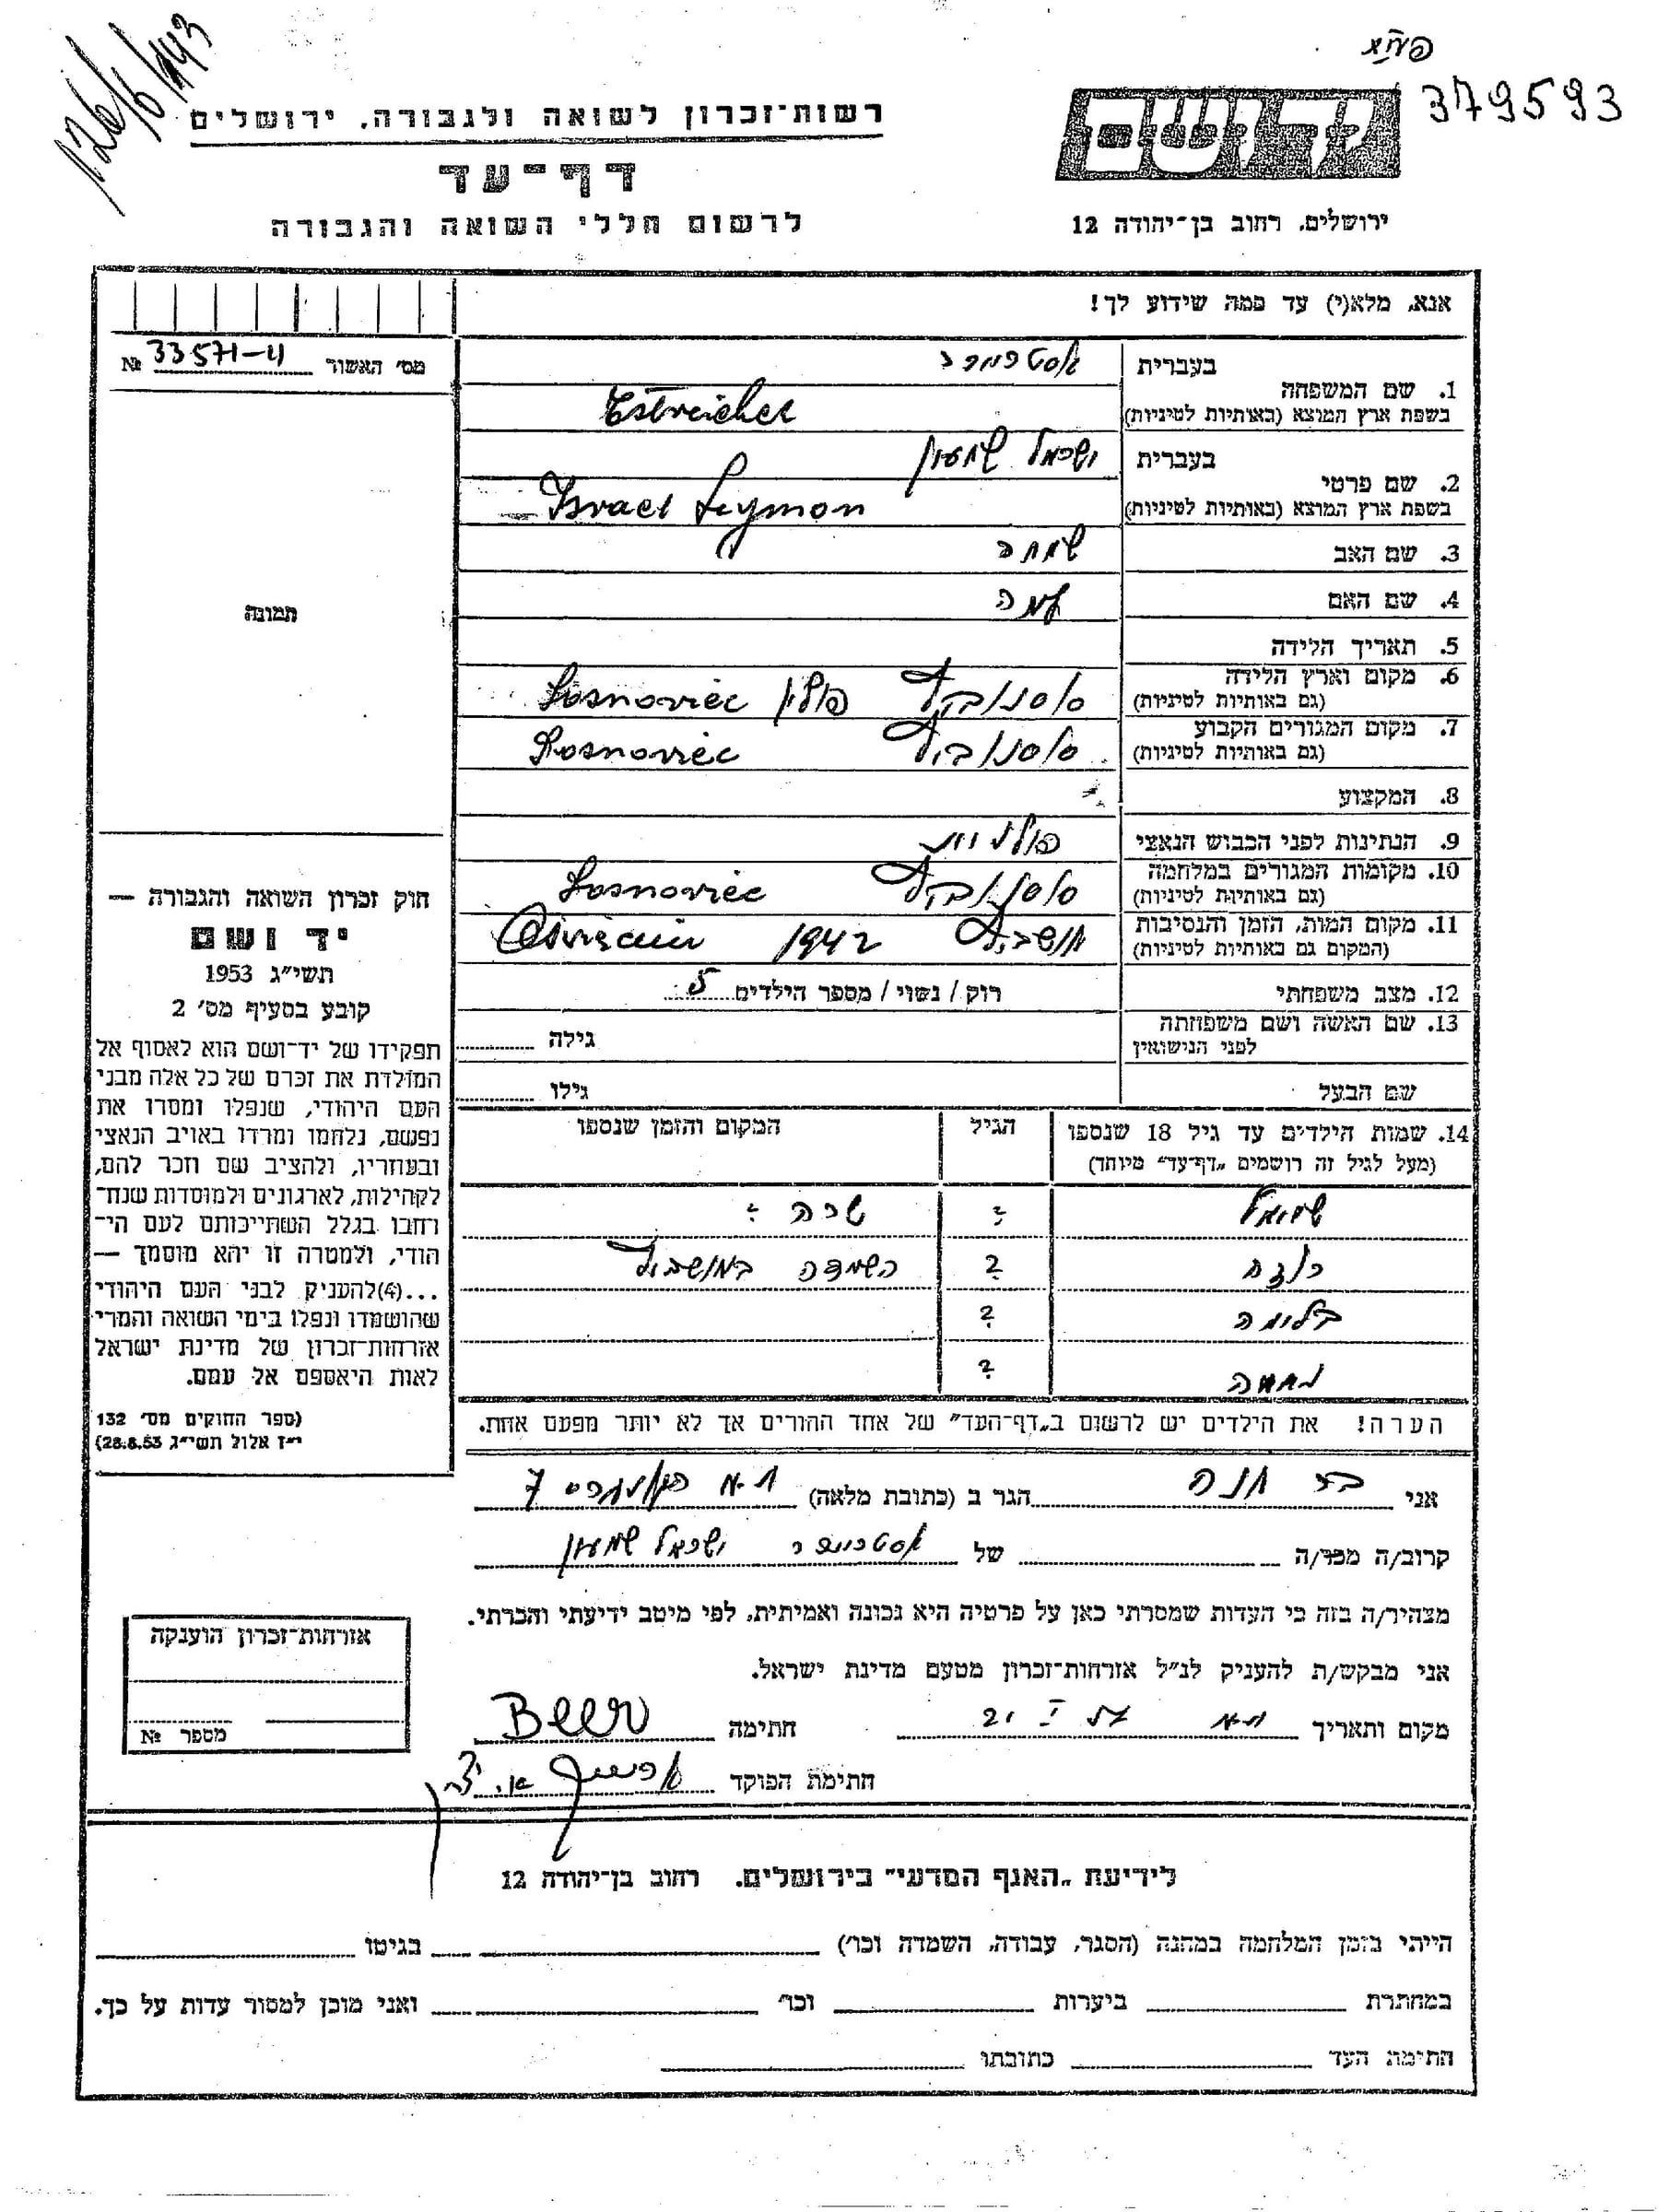 126/6/143
379593
יד ושם
רשות־זכרון לשואה ולגבורה, ירושלים
דף־עד
לרשום חללי השואה והגבורה
ירושלים, רחוב בן־יהודה 12
אנא, מלא(י) עד כמה שידוע לך!
מס׳ האשור № 33571-ע
1. שם המשפחה
בעברית
בשפת ארץ המוצא (באותיות לטיניות) Estreicher
2. שם פרטי
בעברית ישראל שמעון
בשפת ארץ המוצא (באותיות לטיניות) Israel Symon
3. שם האב שמחה
4. שם האם
תמונה
5. תאריך הלידה
6. מקום וארץ הלידה
(גם באותיות לטיניות) סוסנוביץ פולין Sosnoviec
7. מקום המגורים הקבוע
(גם באותיות לטיניות) סוסנוביץ Sosnoviec
8. המקצוע
9. הנתינות לפני הכבוש הנאצי פולנית
10. מקומות המגורים במלחמה
(גם באותיות לטיניות) סוסנוביץ Sosnoviec
11. מקום המות, הזמן והנסיבות
(המקום גם באותיות לטיניות) אושביץ 1942
12. מצב משפחתי רוק / נשוי / מספר הילדים 5
13. שם האשה ושם משפחתה
לפני הנישואין
גילה
שם הבעל גילו
14. שמות הילדים עד גיל 18 שנספו
(מעל לגיל זה רושמים „דף־עד” מיוחד)
הגיל
המקום והזמן שנספו
שמואל ? שכה ?
? השמדה באושביץ
בלומה ?
נחמה ?
הערה! את הילדים יש לרשום ב„דף־העד” של אחד ההורים אך לא יותר מפעם אחת.
חוק זכרון השואה והגבורה —
יד ושם
תשי״ג 1953
קובע בסעיף מס׳ 2
תפקידו של יד־ושם הוא לאסוף אל
המולדת את זכרם של כל אלה מבני
העם היהודי, שנפלו ומסרו את
נפשם, נלחמו ומרדו באויב הנאצי
ובעוזריו, ולהציב שם וזכר להם,
לקהילות, לארגונים ולמוסדות שנח־
רחבו בגלל השתייכותם לעם הי־
הודי, ולמטרה זו יהא מוסמך —
...(4)להעניק לבני העם היהודי
שהושמדו ונפלו בימי השואה והמרי
אזרחות־זכרון של מדינת ישראל
לאות היאספם אל עמם.
(ספר החוקים מס׳ 132
י״ז אלול תשי״ג 28.8.53)
אני חנה הגר ב (כתובת מלאה) ת״א 7
קרוב/ה מכר/ה של ישראל שמעון
מצהיר/ה בזה כי העדות שמסרתי כאן על פרטיה היא נכונה ואמיתית, לפי מיטב ידיעתי והכרתי.
אני מבקש/ת להעניק לנ״ל אזרחות־זכרון מטעם מדינת ישראל.
מקום ותאריך ת״א חתימה Beer
חתימת הפוקד
אזרחות־זכרון הוענקה
מספר №
לידיעת „האגף המדעי” בירושלים, רחוב בן־יהודה 12
הייתי בזמן המלחמה במחנה (הסגר, עבודה, השמדה וכו׳) בגיטו
במחתרת ביערות וכו׳ ואני מוכן למסור עדות על כך.
חתימת העד כתובתו